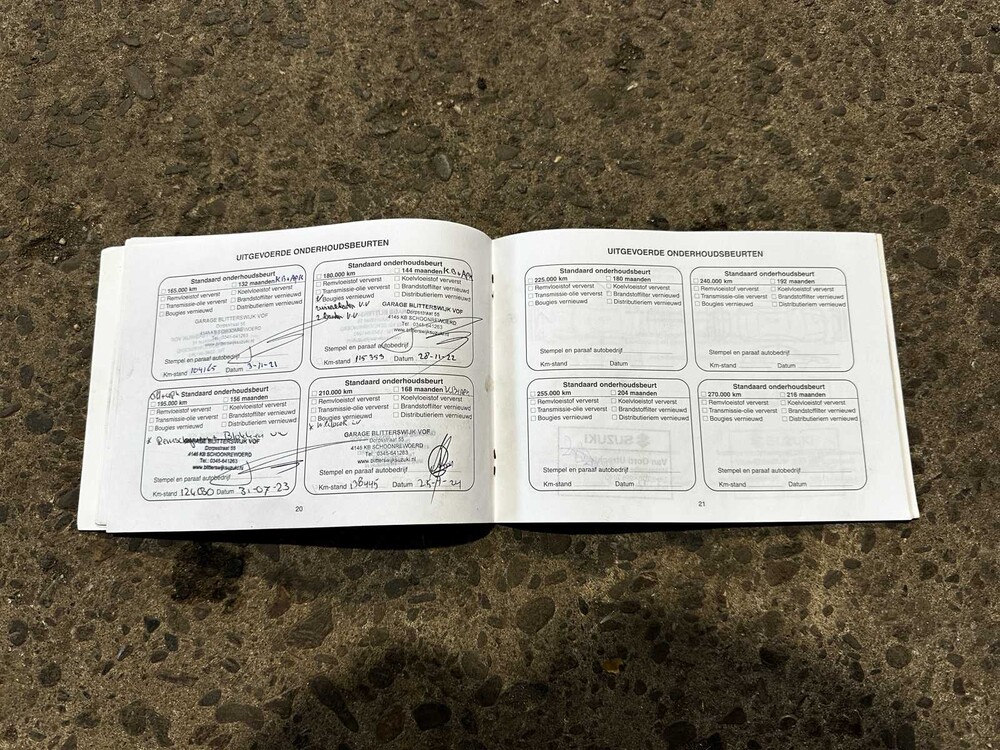 UITGEVOERDE ONDERHOUDSBEURTEN
Standaard onderhoudsbeurt
165.000 km 132 maanden KB+APK
Remvloeistof ververst Koelvloeistof ververst
Transmissie-olie ververst Brandstoffilter vernieuwd
Bougies vernieuwd Distributieriem vernieuwd
GARAGE BLITTERSWIJK VOF
Dorpsstraat 55
4145 KB SCHOONREWOERD
Tel.: 0345-641263
Stempel en paraaf autobedrijf
Km-stand 104165 Datum 3-11-21
Standaard onderhoudsbeurt
180.000 km 144 maanden KB+APK
Remvloeistof ververst Koelvloeistof ververst
Transmissie-olie ververst Brandstoffilter vernieuwd
Bougies vernieuwd Distributieriem vernieuwd
2 banden v.v
GARAGE BLITTERSWIJK VOF
Dorpsstraat 55
4145 KB SCHOONREWOERD
Tel.: 0345-641263
www.blitterswijksuzuki.nl
Stempel en paraaf autobedrijf
Km-stand 115393 Datum 28-11-22
Standaard onderhoudsbeurt
195.000 km 156 maanden
Remvloeistof ververst Koelvloeistof ververst
Transmissie-olie ververst Brandstoffilter vernieuwd
Bougies vernieuwd Distributieriem vernieuwd
GARAGE BLITTERSWIJK VOF
Dorpsstraat 55
4145 KB SCHOONREWOERD
Tel.: 0345-641263
www.blitterswijksuzuki.nl
Stempel en paraaf autobedrijf
Km-stand 124030 Datum 31-07-23
Standaard onderhoudsbeurt
210.000 km 168 maanden
Remvloeistof ververst Koelvloeistof ververst
Transmissie-olie ververst Brandstoffilter vernieuwd
Bougies vernieuwd Distributieriem vernieuwd
GARAGE BLITTERSWIJK VOF
Dorpsstraat 55
4145 KB SCHOONREWOERD
Tel.: 0345-641263
www.blitterswijksuzuki.nl
Stempel en paraaf autobedrijf
Km-stand 138445 Datum
20
UITGEVOERDE ONDERHOUDSBEURTEN
Standaard onderhoudsbeurt
225.000 km 180 maanden
Remvloeistof ververst Koelvloeistof ververst
Transmissie-olie ververst Brandstoffilter vernieuwd
Bougies vernieuwd Distributieriem vernieuwd
Stempel en paraaf autobedrijf
Km-stand Datum
Standaard onderhoudsbeurt
240.000 km 192 maanden
Remvloeistof ververst Koelvloeistof ververst
Transmissie-olie ververst Brandstoffilter vernieuwd
Bougies vernieuwd Distributieriem vernieuwd
Stempel en paraaf autobedrijf
Km-stand Datum
Standaard onderhoudsbeurt
255.000 km 204 maanden
Remvloeistof ververst Koelvloeistof ververst
Transmissie-olie ververst Brandstoffilter vernieuwd
Bougies vernieuwd Distributieriem vernieuwd
Stempel en paraaf autobedrijf
Km-stand Datum
Standaard onderhoudsbeurt
270.000 km 216 maanden
Remvloeistof ververst Koelvloeistof ververst
Transmissie-olie ververst Brandstoffilter vernieuwd
Bougies vernieuwd Distributieriem vernieuwd
Stempel en paraaf autobedrijf
Km-stand Datum
21